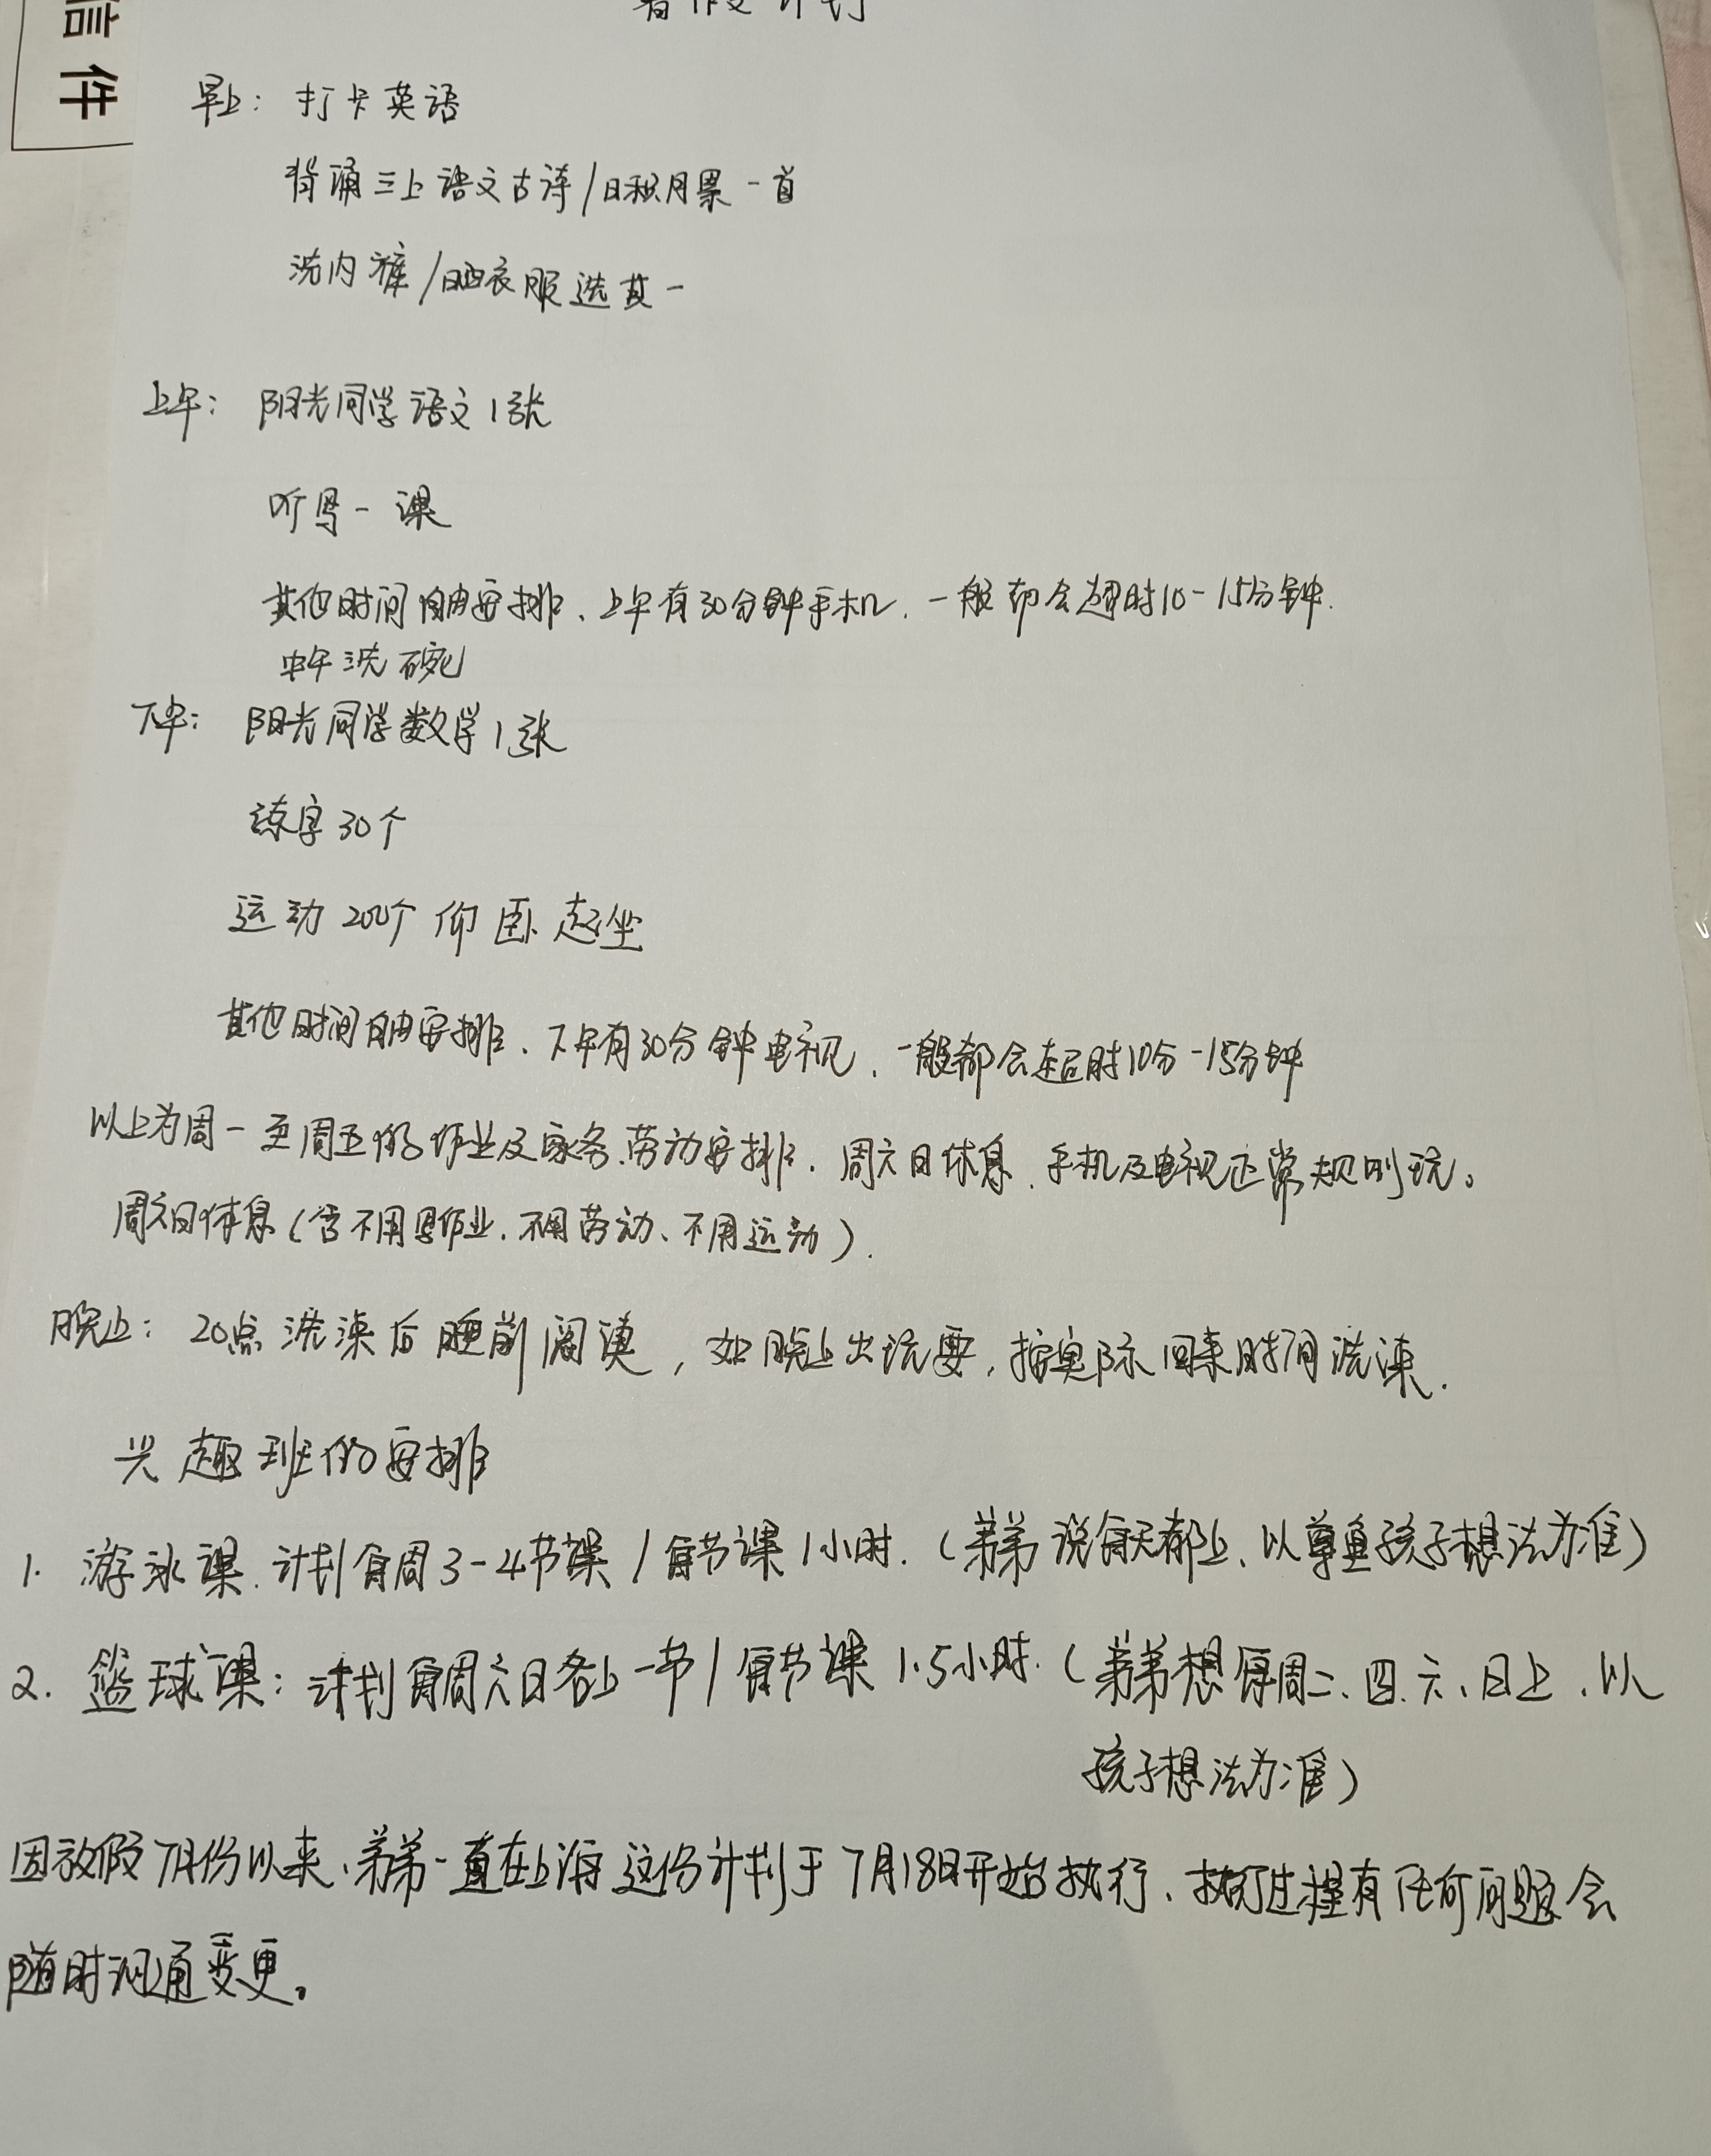 信件
计划
早上：打卡英语
背诵三上语文古诗/日积月累一首
洗内裤/晒衣服选其一
上午：阳光同学语文1张
听写一课
其他时间自由安排、上午有30分钟手机，一般都会超时10-15分钟.
中午洗碗
下午：阳光同学数学1张
练字30个
运动200个仰卧起坐
其他时间自由安排、下午有30分钟电视，一般都会超时10分-15分钟
以上为周一至周五的作业及家务、劳动安排. 周六日休息、手机及电视正常规则玩。
周六日休息（含不用写作业、不用劳动、不用运动）.
晚上：20点洗澡后睡前阅读，如晚上出玩要，按实际回来时间洗澡.
兴趣班的安排
1. 游泳课. 计划每周3-4节课/每节课1小时.（弟弟说每天都上、以尊重孩子想法为准）
2. 篮球课：计划每周六日各上一节/每节课1.5小时.（弟弟想每周二、四、六、日上、以
孩子想法为准）
因放假7月份以来、弟弟一直在上海 这份计划于7月18日开始执行、执行过程有任何问题会
随时沟通变更。